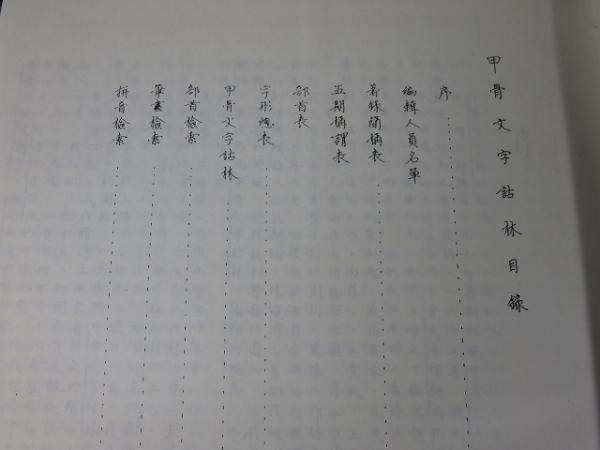 甲骨文字詁林目錄
序
編輯人員名單
著錄簡稱表
五期稱謂表
部首表
字形總表
甲骨文字詁林
部首檢索
筆畫檢索
拼音檢索